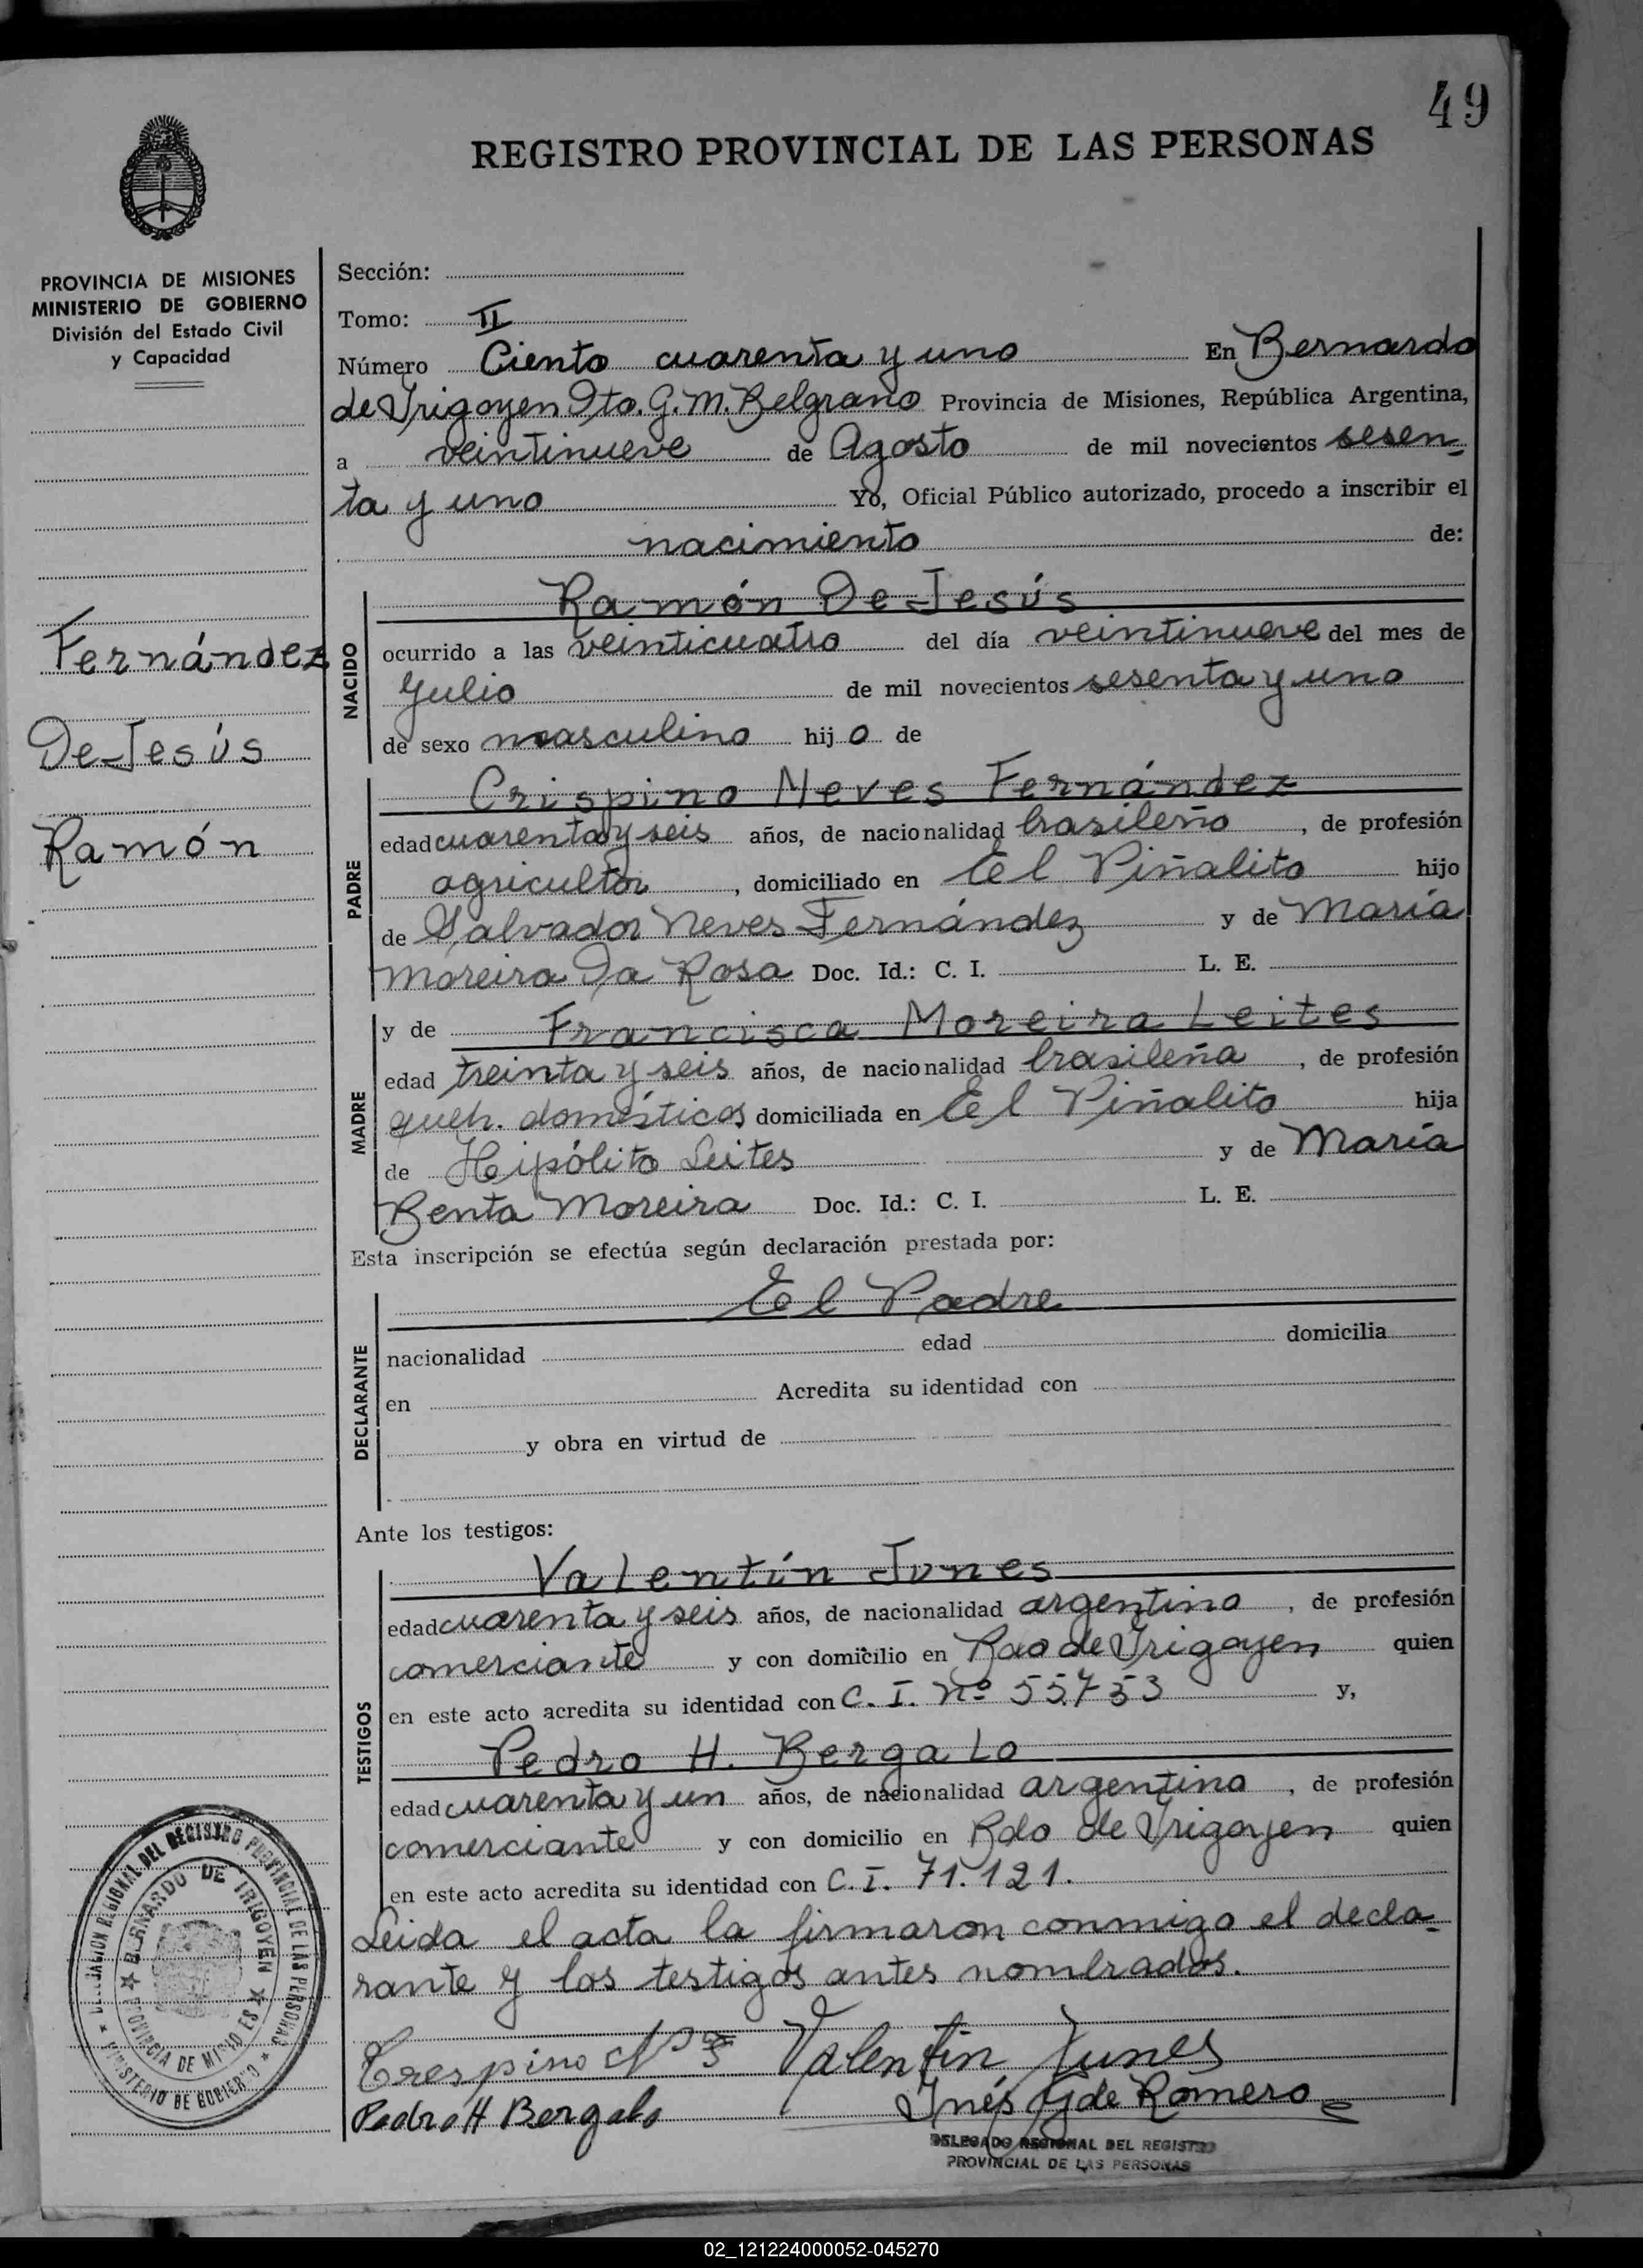 49
REGISTRO PROVINCIAL DE LAS PERSONAS
PROVINCIA DE MISIONES
MINISTERIO DE GOBIERNO
División del Estado Civil
y Capacidad
Fernández
De Jesús
Ramón
Sección:
Tomo: II
Número Ciento cuarenta y uno En Bernardo
de Yrigoyen Dto. G. M. Belgrano Provincia de Misiones, República Argentina,
a veintinueve de Agosto de mil novecientos sesen-
ta y uno Yo, Oficial Público autorizado, procedo a inscribir el
nacimiento de:
NACIDO
Ramón De Jesús
ocurrido a las veinticuatro del día veintinueve del mes de
Julio de mil novecientos sesenta y uno
de sexo masculino hijo de
PADRE
Crispino Neves Fernández
edad cuarenta y seis años, de nacionalidad brasileño, de profesión
agricultor, domiciliado en El Piñalito hijo
de Salvador Neves Fernández y de María
Moreira Da Rosa Doc. Id.: C. I. L. E.
MADRE
y de Francisca Moreira Leites
edad treinta y seis años, de nacionalidad brasileña, de profesión
queh. domésticos domiciliada en El Piñalito hija
de Hipólito Leites y de María
Benta Moreira Doc. Id.: C. I. L. E.
Esta inscripción se efectúa según declaración prestada por:
DECLARANTE
El Padre
nacionalidad edad domicilia
en Acredita su identidad con
y obra en virtud de
Ante los testigos:
TESTIGOS
Valentín Junes
edad cuarenta y seis años, de nacionalidad argentino, de profesión
comerciante y con domicilio en Bdo de Yrigoyen quien
en este acto acredita su identidad con C. I. Nº 55.753 y,
Pedro H. Bergalo
edad cuarenta y un años, de nacionalidad argentino, de profesión
comerciante y con domicilio en Bdo de Yrigoyen quien
en este acto acredita su identidad con C. I. 71.121.
Leida el acta la firmaron conmigo el decla-
rante y los testigos antes nombrados.
Crespino Valentin Junes
Pedro H Bergalo Inés G de Romero
DELEGADO REGIONAL DEL REGISTRO
PROVINCIAL DE LAS PERSONAS
DELEGACION REGIONAL DEL REGISTRO PROVINCIAL DE LAS PERSONAS
MINISTERIO DE GOBIERNO
BERNARDO DE IRIGOYEN
PROVINCIA DE MISIONES
02_121224000052-045270